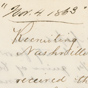 "Nov. 4 1863"
Recruiting
Nashville
received th